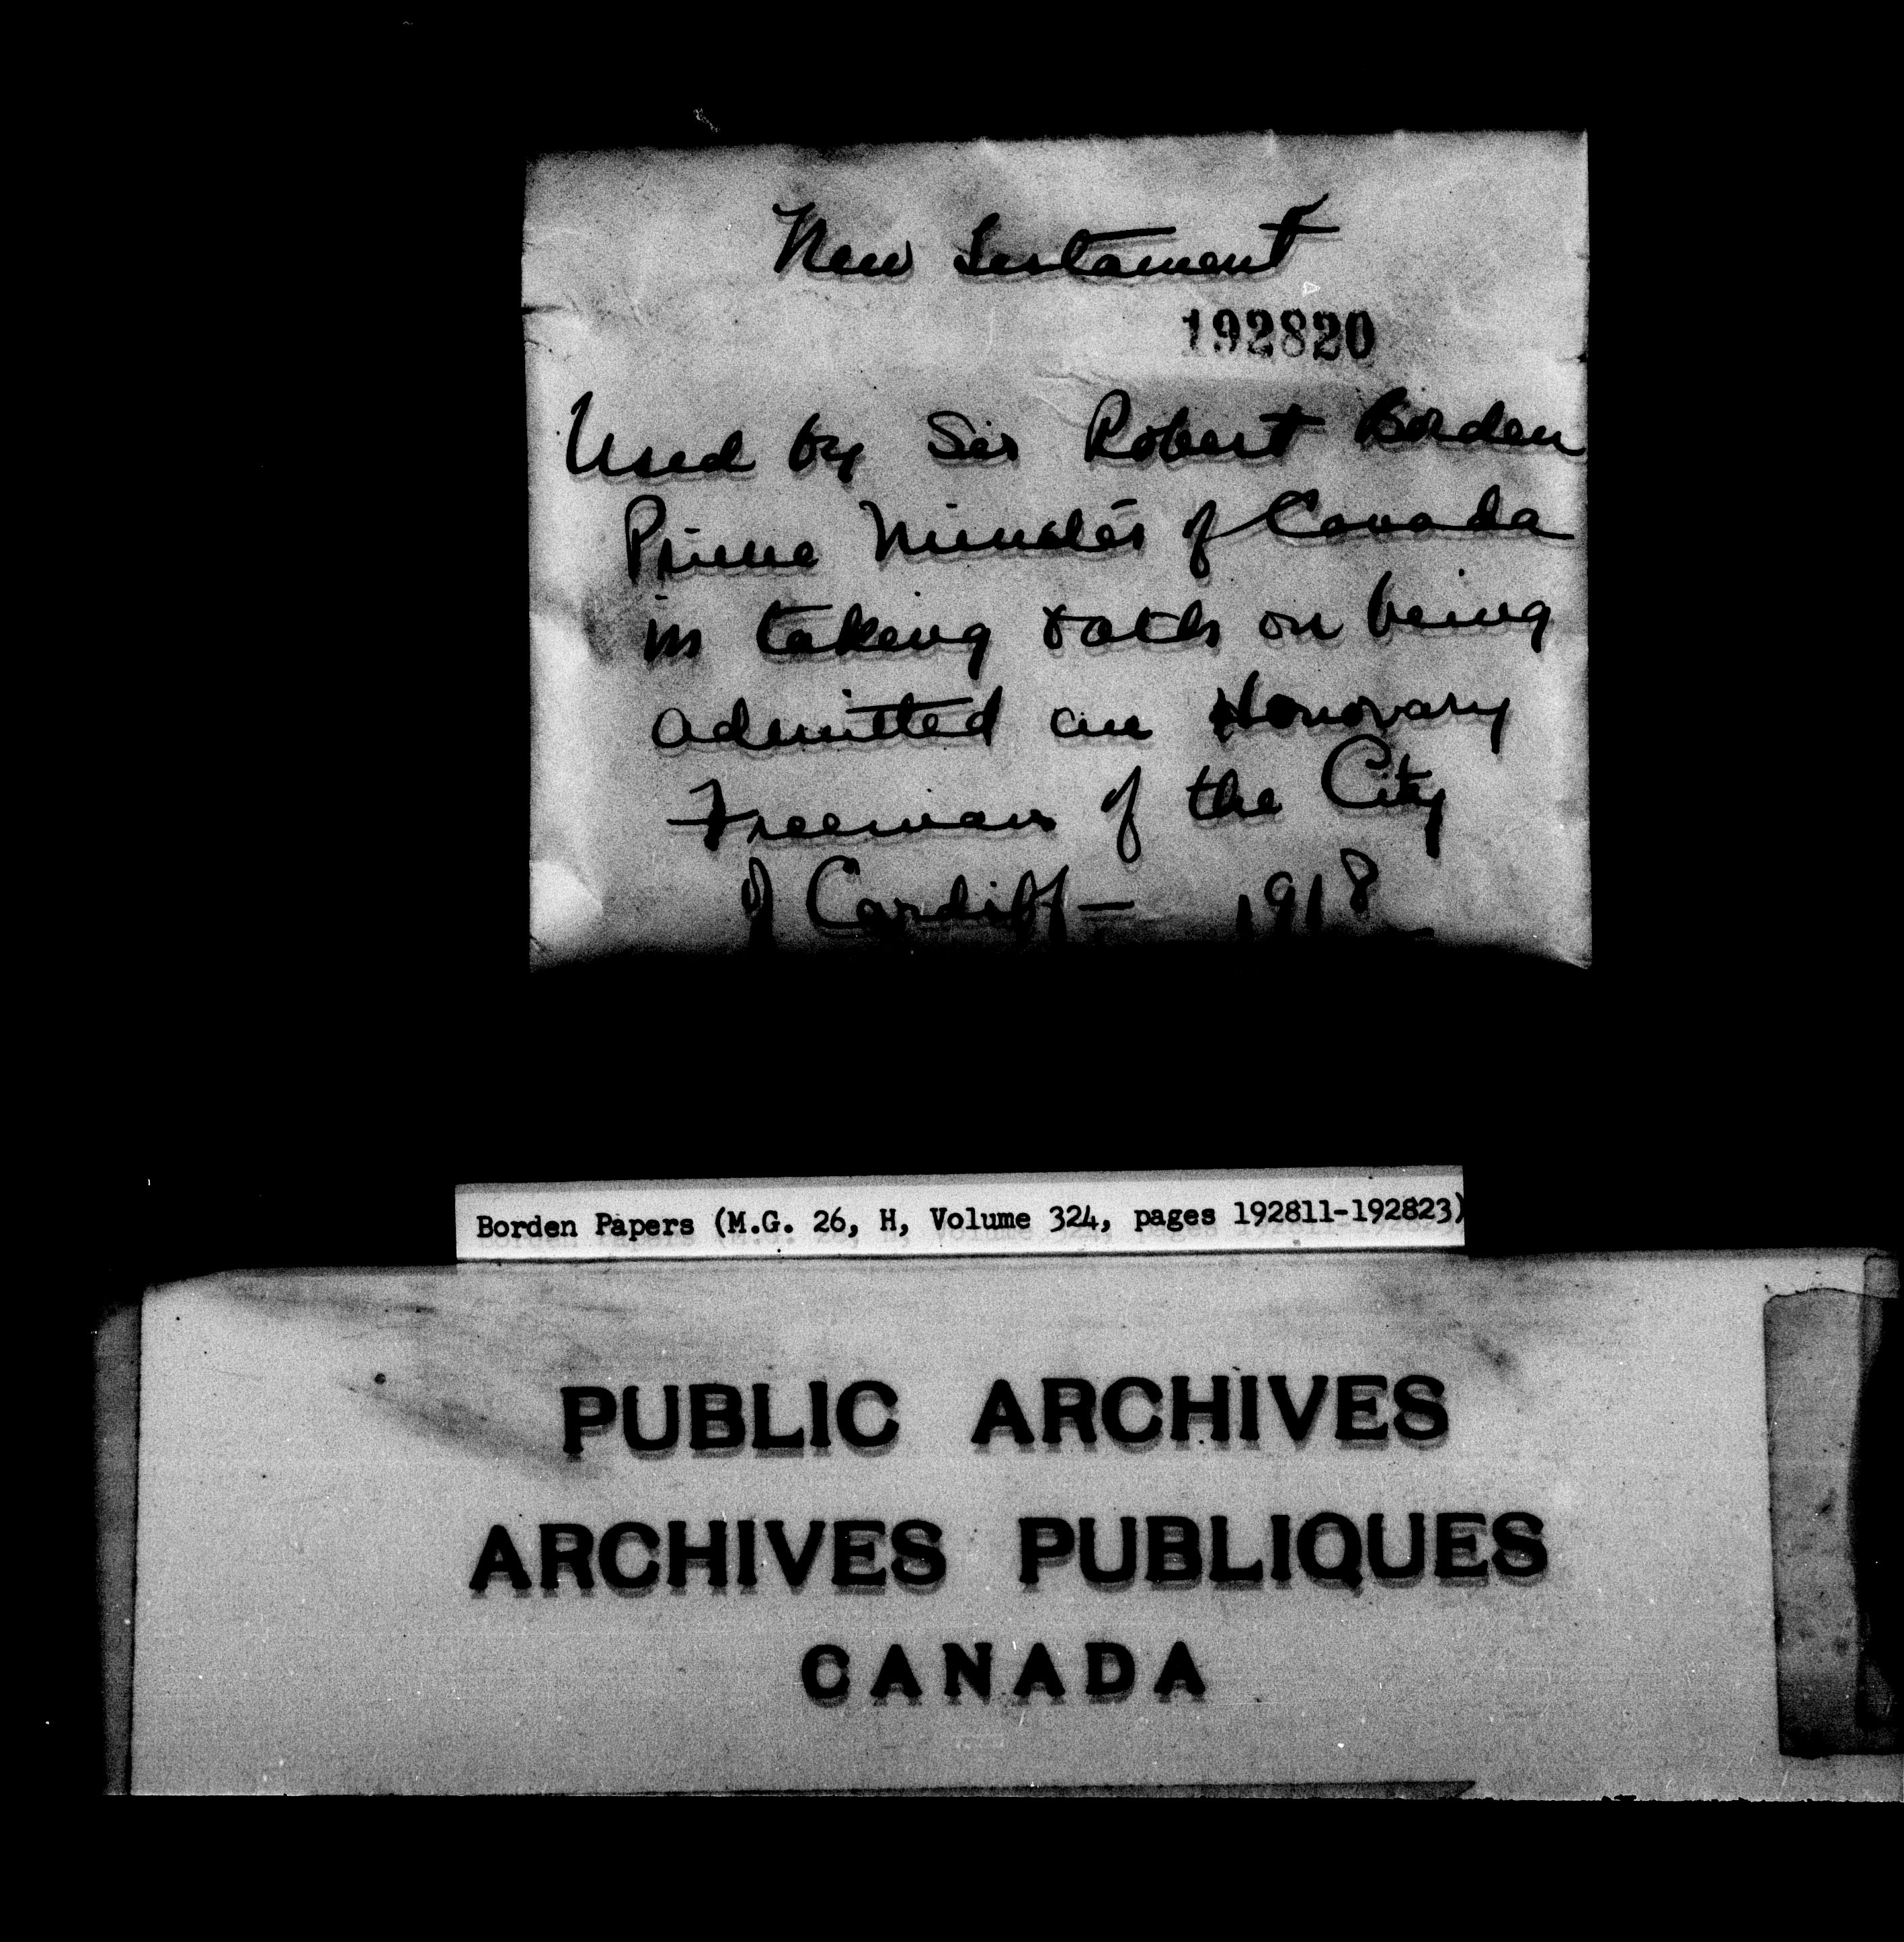 New Testament
192820
Used by Sir Robert Borden
Prime Minister of Canada
in taking oath on being
admitted an Honorary
Freeman of the City
of Cardiff — 1918
Borden Papers (M.G. 26, H, Volume 324, pages 192811-192823)
PUBLIC ARCHIVES
ARCHIVES PUBLIQUES
CANADA